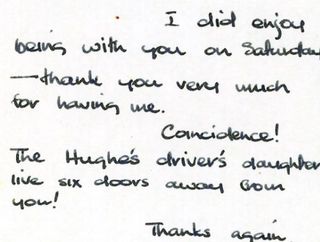 I did enjoy
being with you on Saturday
—thank you very much
for having me.
Coincidence!
The Hughe's driver's daughter
live six doors away from
you!
Thanks again